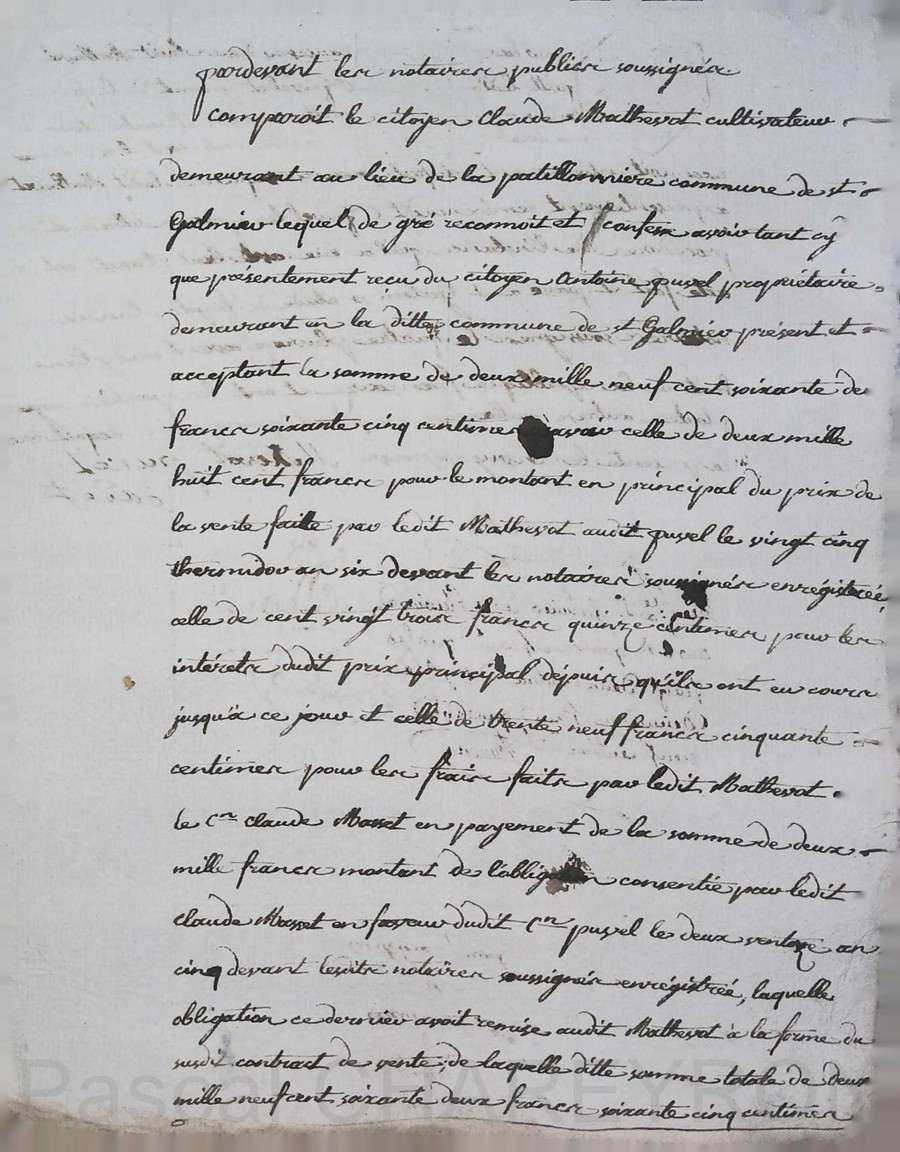 pardevant les notaires publics soussignés
comparoit le citoyen Claude Mathevot cultivateur
demeurant au lieu de la patillonniere commune de st
Galmier lequel de gré reconnoit et confesse avoir tant cy
que présentement recu du citoyen Antoine puvel propriétaire
demeurant en la ditte commune de st Galmier présent et
acceptant la somme de deux mille neuf cent soixante de
francs soixante cinq centimes savoir celle de deux mille
huit cent francs pour le montant en principal du prix de
la vente faite par ledit Mathevot audit puvel le vingt cinq
thermidor an six devant les notaires soussignés enrégistréé,
celle de cent vingt trois francs quinze centimes pour les
intérets dudit prix principal dépuis qu'ils ont eu cours
jusqu'à ce jour et celle de trente neuf francs cinquante
centimes pour les frais faits par ledit Mathevot.
le Cen Claude Masset en payement de la somme de deux
mille francs montant de l'obligation consentie par ledit
Claude Masset en faveur dudit Cen puvel le deux ventose an
cinq devant lesdits notaires soussignés enrégistréé, laquelle
obligation ce dernier avoit remise audit Mathevot à la forme du
susdit contract de vente; de laquelle ditte somme totale de deux
mille neuf cent soixante deux francs soixante cinq centimes
Pascal